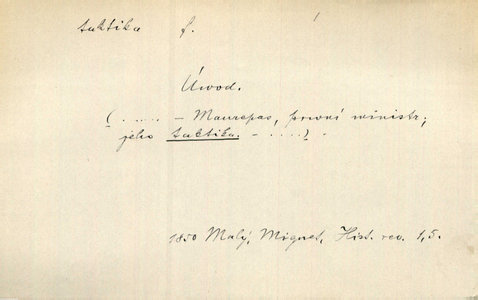 taktika f.
Úvod.
(..... – Maurepas, první ministr;
jeho taktika. – .....).
1850 Malý, Mignet, Hist. rev. 1,5.